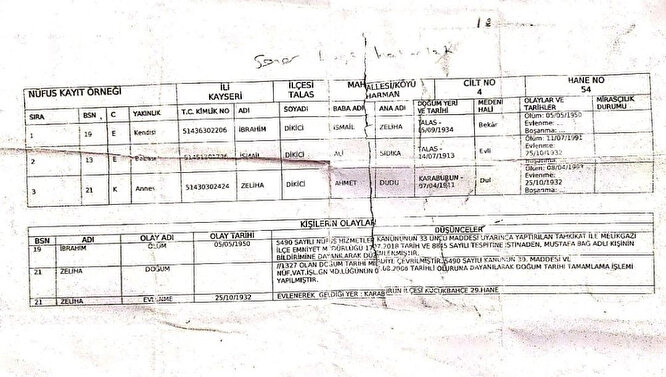 18
NÜFUS KAYIT ÖRNEĞİ İLİ KAYSERİ İLÇESİ TALAS MAHALLESİ/KÖYÜ HARMAN CİLT NO 4 HANE NO 54
SIRA BSN C YAKINLIK T.C. KİMLİK NO ADI SOYADI BABA ADI ANA ADI DOĞUM YERİ VE TARİHİ MEDENİ HALİ OLAYLAR VE TARİHLER MİRASÇILIK DURUMU
1 19 E Kendisi 51436302206 İBRAHİM DİKİCİ İSMAİL ZELİHA TALAS - 05/09/1934 Bekâr Ölüm: 05/05/1950 Evlenme: Boşanma:
2 13 E İSMAİL DİKİCİ ALİ SIDIKA TALAS - 14/07/1913 Evli Ölüm: 11/07/1991 Evlenme: 25/10/1932 Boşanma:
3 21 K Annesi 51430302424 ZELİHA DİKİCİ AHMET DUDU KARABURUN - 07/04/1911 Dul Ölüm: Evlenme: 25/10/1932 Boşanma:
KİŞİLERİN OLAYLARI
BSN ADI OLAY ADI OLAY TARİHİ DÜŞÜNCELER
19 İBRAHİM ÖLÜM 05/05/1950 5490 SAYILI NÜFUS HİZMETLERİ KANUNUNUN 33 ÜNCÜ MADDESİ UYARINCA YAPTIRILAN TAHKİKAT İLE MELİKGAZİ
İLÇE EMNİYET MÜDÜRLÜĞÜ 2018 TARİH VE SAYILI TESPİTİNE İSTİNADEN, MUSTAFA BAĞ ADLI KİŞİNİN
BİLDİRİMİNE DAYANILARAK DÜZENLENMİŞTİR.
21 ZELİHA DOĞUM //1327 OLAN DOĞUM TARİHİ MİLADİYE ÇEVRİLMİŞTİR.5490 SAYILI KANUN 39. MADDESİ VE
NÜF.VAT.İŞL.GN.MD.LÜĞÜNÜN 2008 TARİHLİ OLURUNA DAYANILARAK DOĞUM TARİHİ TAMAMLAMA İŞLEMİ
YAPILMIŞTIR.
21 ZELİHA EVLENME 25/10/1932 EVLENEREK GELDİĞİ YER : KARABURUN İLÇESİ KÜÇÜKBAHÇE 29.HANE